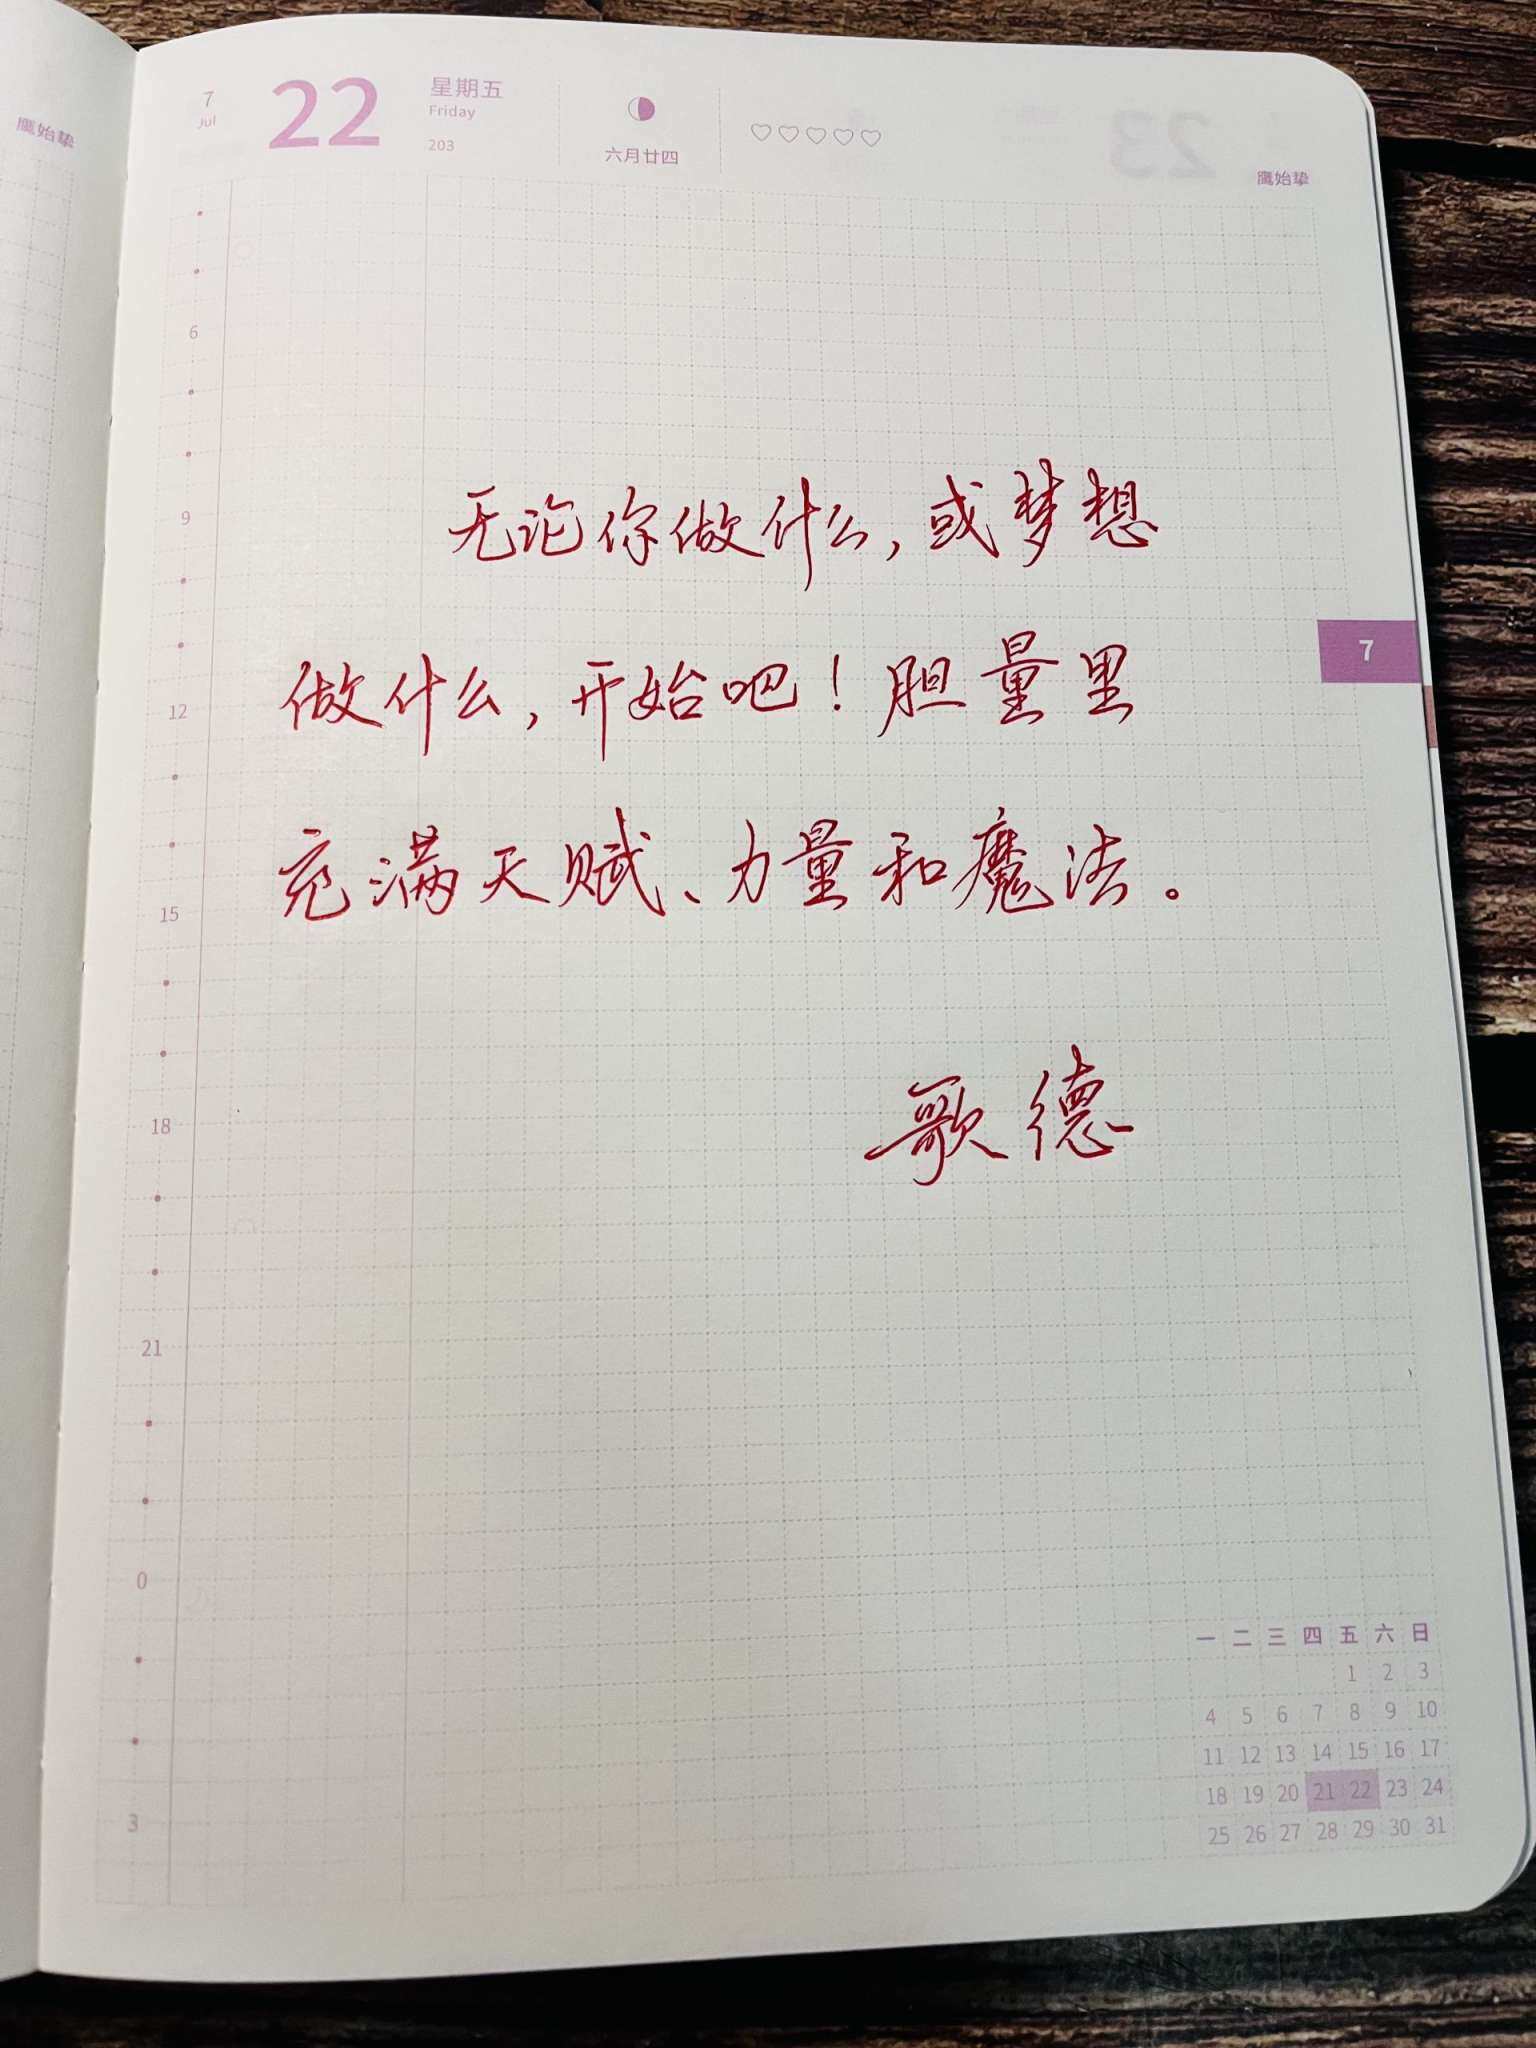 鹰始挚
7
Jul
22
星期五
Friday
203
六月廿四
23
鹰始挚
6
9
12
15
18
21
0
3
无论你做什么，或梦想
做什么，开始吧！胆量里
充满天赋、力量和魔法。
歌德
7
一 二 三 四 五 六 日
1 2 3
4 5 6 7 8 9 10
11 12 13 14 15 16 17
18 19 20 21 22 23 24
25 26 27 28 29 30 31